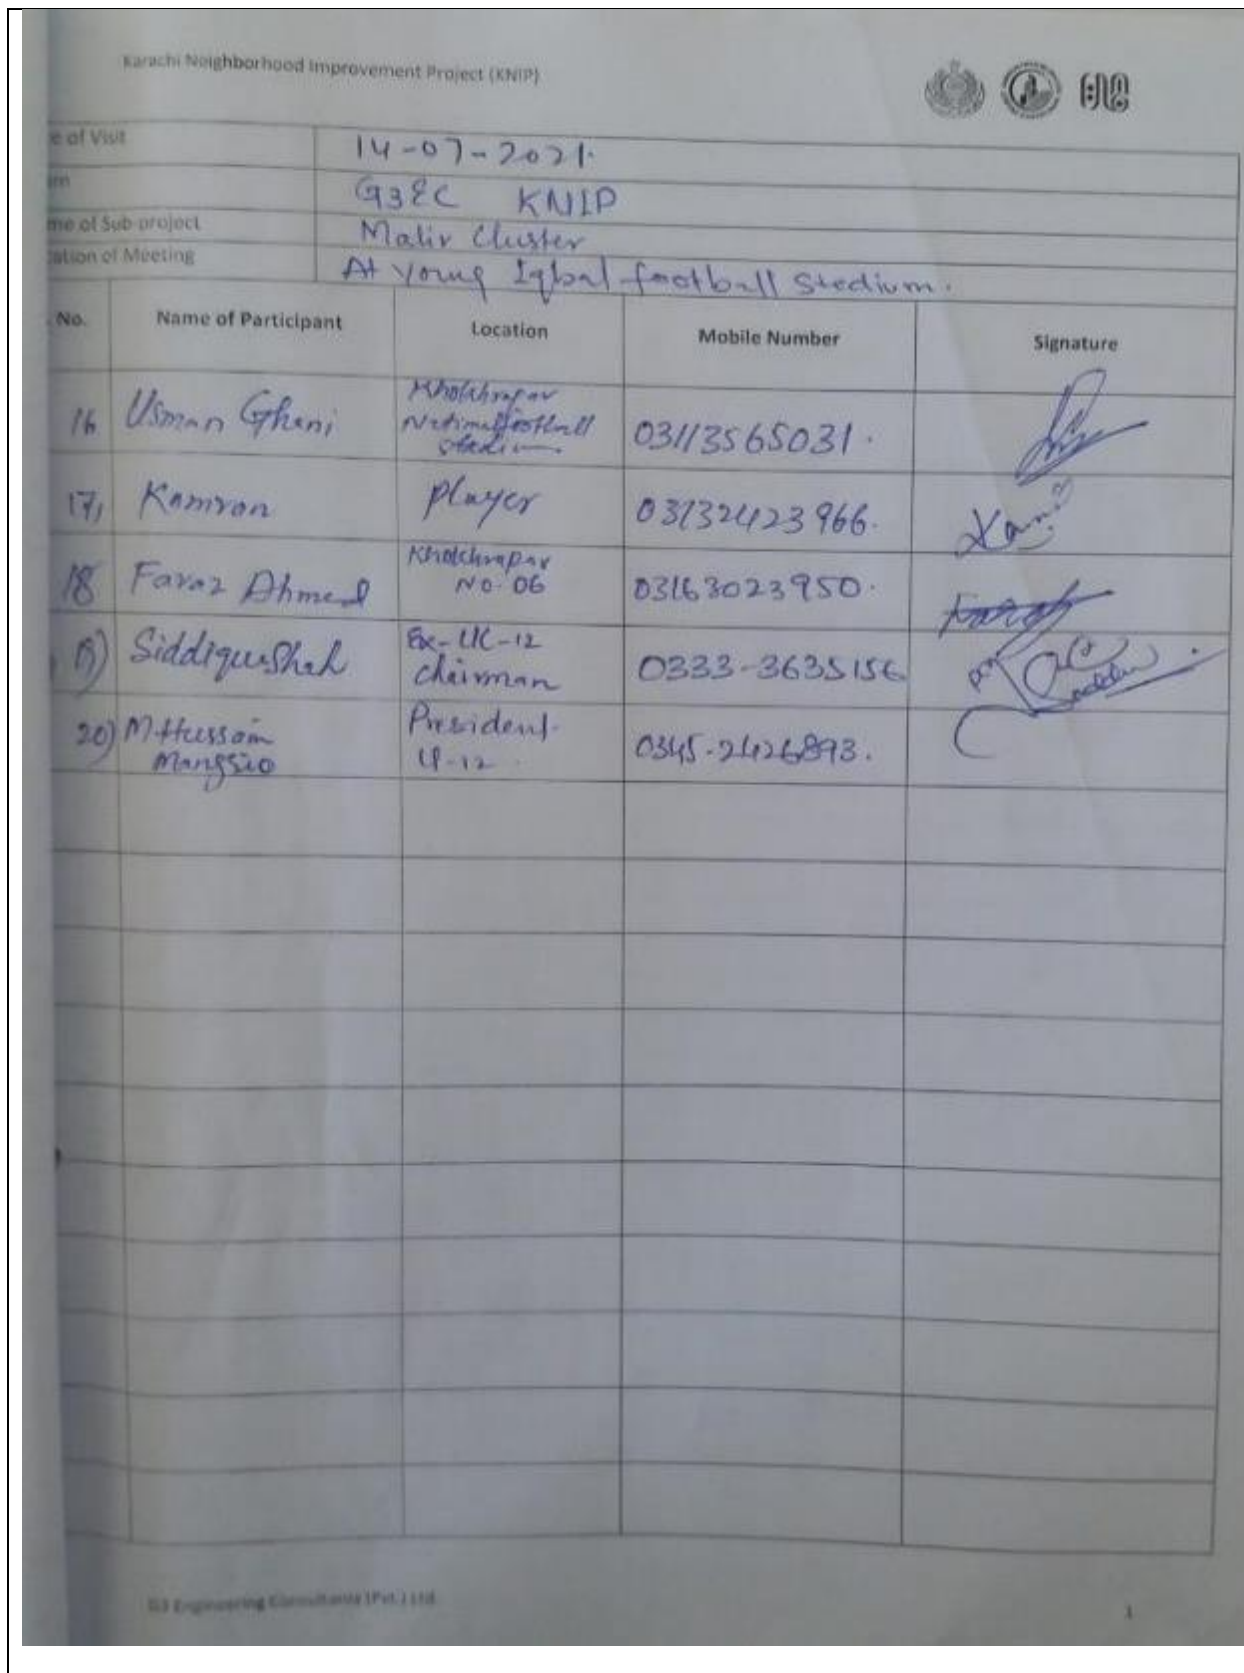 Karachi Neighborhood Improvement Project (KNIP)
e of Visit 14-07-2021.
G3EC KNIP
me of Sub-project Malir Cluster
ation of Meeting At Young Iqbal football Stedium.
No. Name of Participant Location Mobile Number Signature
16 Usman Ghani Khokhrapar National football stadium 03113565031.
17, Kamran player 03132423966.
18 Faraz Ahmed Khokhrapar No. 06 03163023950.
19) Siddique Shah Ex-UC-12 Chairman 0333-3635156
20) M. Hussain Mangsio President 0345-2426893.
G3 Engineering Consultants (Pvt.) Ltd.
1